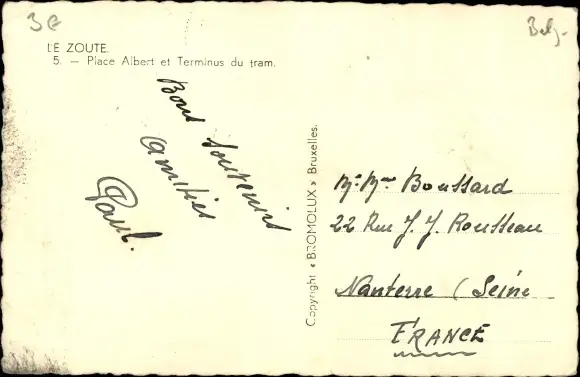 3€
Belg.
LE ZOUTE.
5. — Place Albert et Terminus du tram.
Bons Souvenirs
Amitiés
Paul.
Copyright « BROMOLUX » Bruxelles.
Mr Mme Boussard
22 Rue J. J. Rousseau
Nanterre (Seine
FRANCE